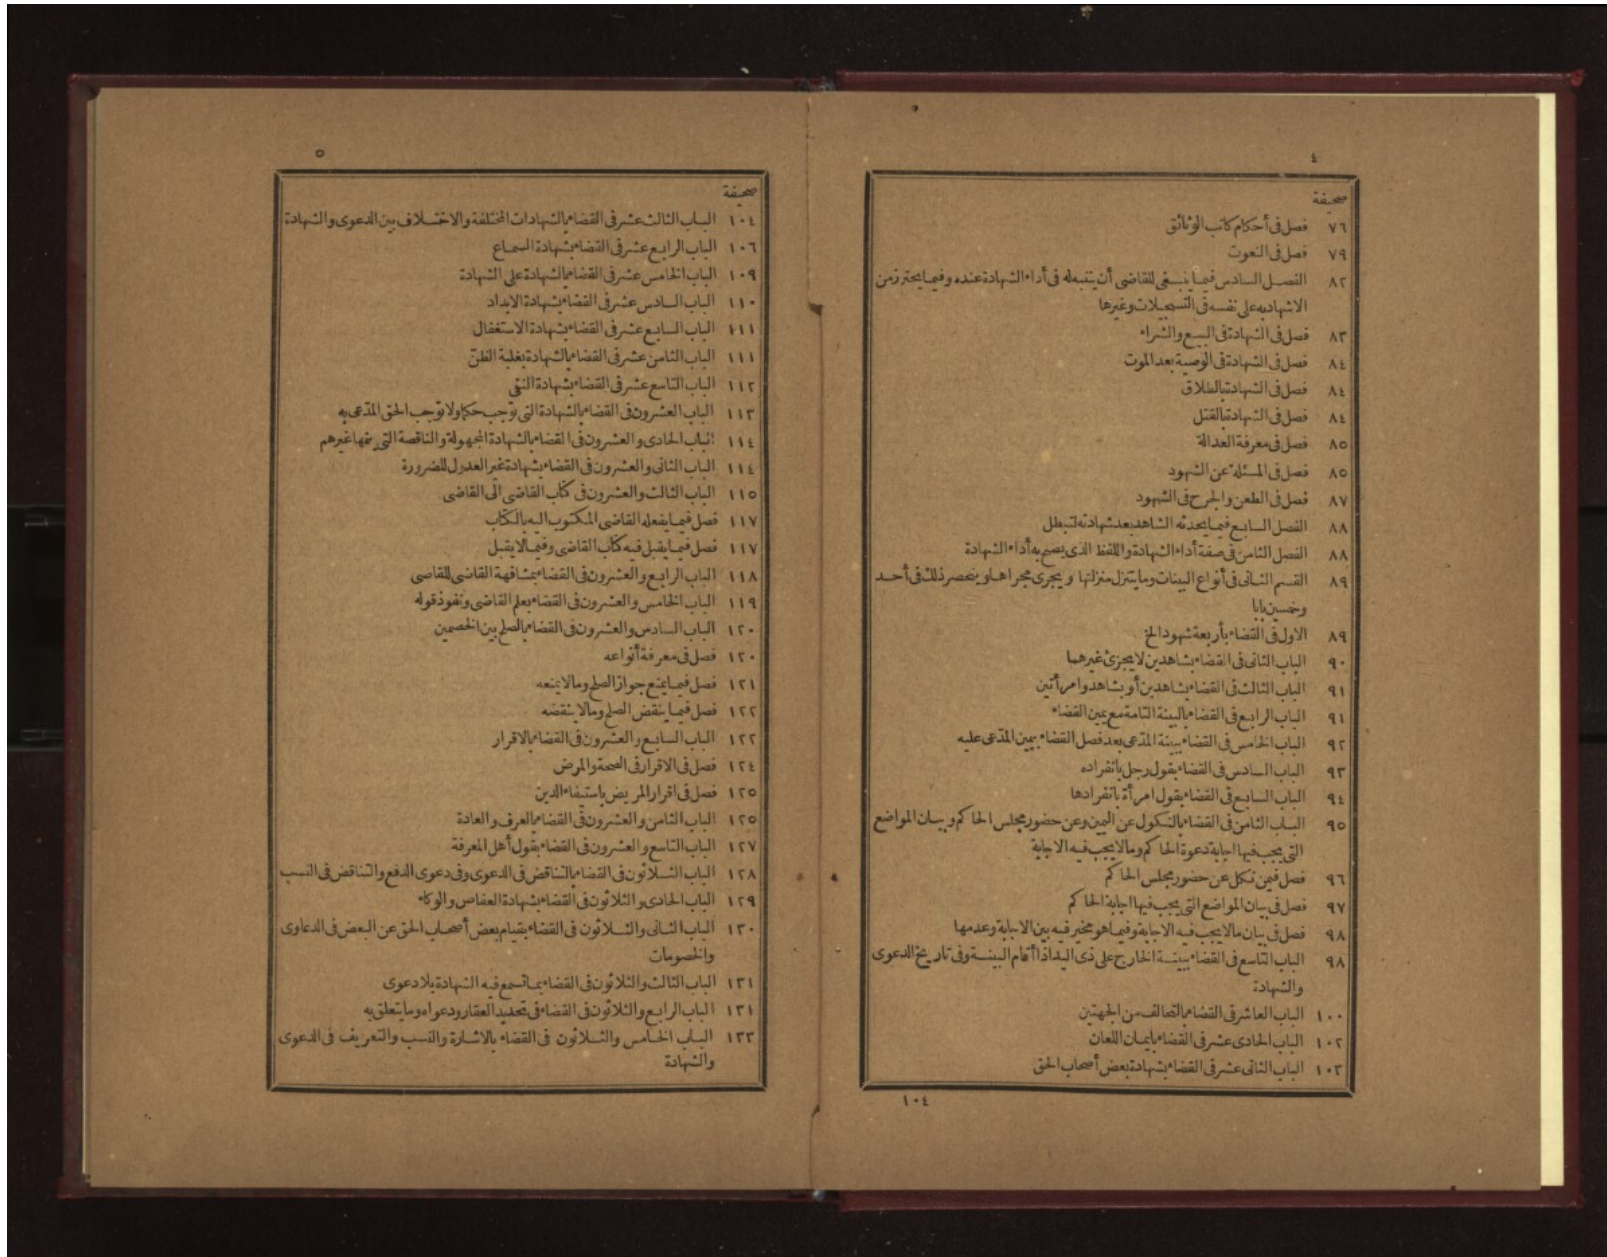 ٤
صحيفة
٧٦ فصل فى أحكام كاتب الوثائق
٧٩ فصل فى النعوت
٨٢ الفصل السادس فيما ينبغى للقاضى أن يتنبه له فى أداء الشهادة عنده وفيما يحترز من
الاشهاد به على نفسه فى التسجيلات وغيرها
٨٣ فصل فى الشهادة فى البيع والشراء
٨٤ فصل فى الشهادة فى الوصية بعد الموت
٨٤ فصل فى الشهادة بالطلاق
٨٤ فصل فى الشهادة بالقتل
٨٥ فصل فى معرفة العدالة
٨٥ فصل فى المسئلة عن الشهود
٨٧ فصل فى الطعن والجرح فى الشهود
٨٨ الفصل السابع فيما يحدثه الشاهد بعد شهادته لتبطل
٨٨ الفصل الثامن فى صفة أداء الشهادة واللفظ الذى يصح به أداء الشهادة
٨٩ القسم الثانى فى أنواع البينات وما يتنزل منزلتها ويجرى مجراها وينحصر ذلك فى أحد
وخمسين بابا
٨٩ الاول فى القضاء بأربعة شهود الخ
٩٠ الباب الثانى فى القضاء بشاهدين لا يجزئ غيرهما
٩١ الباب الثالث فى القضاء بشاهدين أو بشاهد وامرأتين
٩١ الباب الرابع فى القضاء بالبينة التامة مع يمين القضاء
٩٢ الباب الخامس فى القضاء ببينة المدّعى بعد فصل القضاء بيمين المدّعى عليه
٩٣ الباب السادس فى القضاء بقول رجل بانفراده
٩٤ الباب السابع فى القضاء بقول امرأة بانفرادها
٩٥ الباب الثامن فى القضاء بالنكول عن اليمين وعن حضور مجلس الحاكم وبيان المواضع
التى يجب فيها اجابة دعوة الحاكم وما لا يجب فيه الاجابة
٩٦ فصل فيمن نكل عن حضور مجلس الحاكم
٩٧ فصل فى بيان المواضع التى يجب فيها اجابة الحاكم
٩٨ فصل فى بيان ما لا يجب فيه الاجابة وفيما هو مخير فيه بين الاجابة وعدمها
٩٨ الباب التاسع فى القضاء ببينة الخارج على ذى اليد اذا أقام البينة وفى تاريخ الدعوى
والشهادة
١٠٠ الباب العاشر فى القضاء بالتحالف من الجهتين
١٠٢ الباب الحادى عشر فى القضاء بايمان اللعان
١٠٣ الباب الثانى عشر فى القضاء بشهادة بعض أصحاب الحق
١٠٤
٥
صحيفة
١٠٤ الباب الثالث عشر فى القضاء بالشهادات المختلفة والاختلاف بين الدعوى والشهادة
١٠٦ الباب الرابع عشر فى القضاء بشهادة السماع
١٠٩ الباب الخامس عشر فى القضاء بالشهادة على الشهادة
١١٠ الباب السادس عشر فى القضاء بشهادة الابداد
١١١ الباب السابع عشر فى القضاء بشهادة الاستغفال
١١١ الباب الثامن عشر فى القضاء بالشهادة بغلبة الظنّ
١١٢ الباب التاسع عشر فى القضاء بشهادة النفى
١١٣ الباب العشرون فى القضاء بالشهادة التى توجب حكما ولا توجب الحق المدّعى به
١١٤ الباب الحادى والعشرون فى القضاء بالشهادة المجهولة والناقصة التى يتمها غيرهم
١١٤ الباب الثانى والعشرون فى القضاء بشهادة غير العدول للضرورة
١١٥ الباب الثالث والعشرون فى كتاب القاضى الى القاضى
١١٧ فصل فيما يفعله القاضى المكتوب اليه بالكتاب
١١٧ فصل فيما يقبل فيه كتاب القاضى وفيما لا يقبل
١١٨ الباب الرابع والعشرون فى القضاء بمشافهة القاضى للقاضى
١١٩ الباب الخامس والعشرون فى القضاء بعلم القاضى ونفوذ قوله
١٢٠ الباب السادس والعشرون فى القضاء بالصلح بين الخصمين
١٢٠ فصل فى معرفة أنواعه
١٢١ فصل فيما يمنع جواز الصلح وما لا يمنعه
١٢٢ فصل فيما ينقض الصلح وما لا ينقضه
١٢٢ الباب السابع والعشرون فى القضاء بالاقرار
١٢٤ فصل فى الاقرار فى الصحة والمرض
١٢٥ فصل فى اقرار المريض باستيفاء الدين
١٢٥ الباب الثامن والعشرون فى القضاء بالعرف والعادة
١٢٧ الباب التاسع والعشرون فى القضاء بقول أهل المعرفة
١٢٨ الباب الثلاثون فى القضاء بالتناقض فى الدعوى وفى دعوى الدفع والتناقض فى النسب
١٢٩ الباب الحادى والثلاثون فى القضاء بشهادة العفاص والوكاء
١٣٠ الباب الثانى والثلاثون فى القضاء بقيام بعض أصحاب الحق عن البعض فى الدعاوى
والخصومات
١٣١ الباب الثالث والثلاثون فى القضاء بما تسمع فيه الشهادة بلا دعوى
١٣١ الباب الرابع والثلاثون فى القضاء فى تحديد العقار ودعواه وما يتعلق به
١٣٣ الباب الخامس والثلاثون فى القضاء بالاشارة والنسب والتعريف فى الدعوى
والشهادة